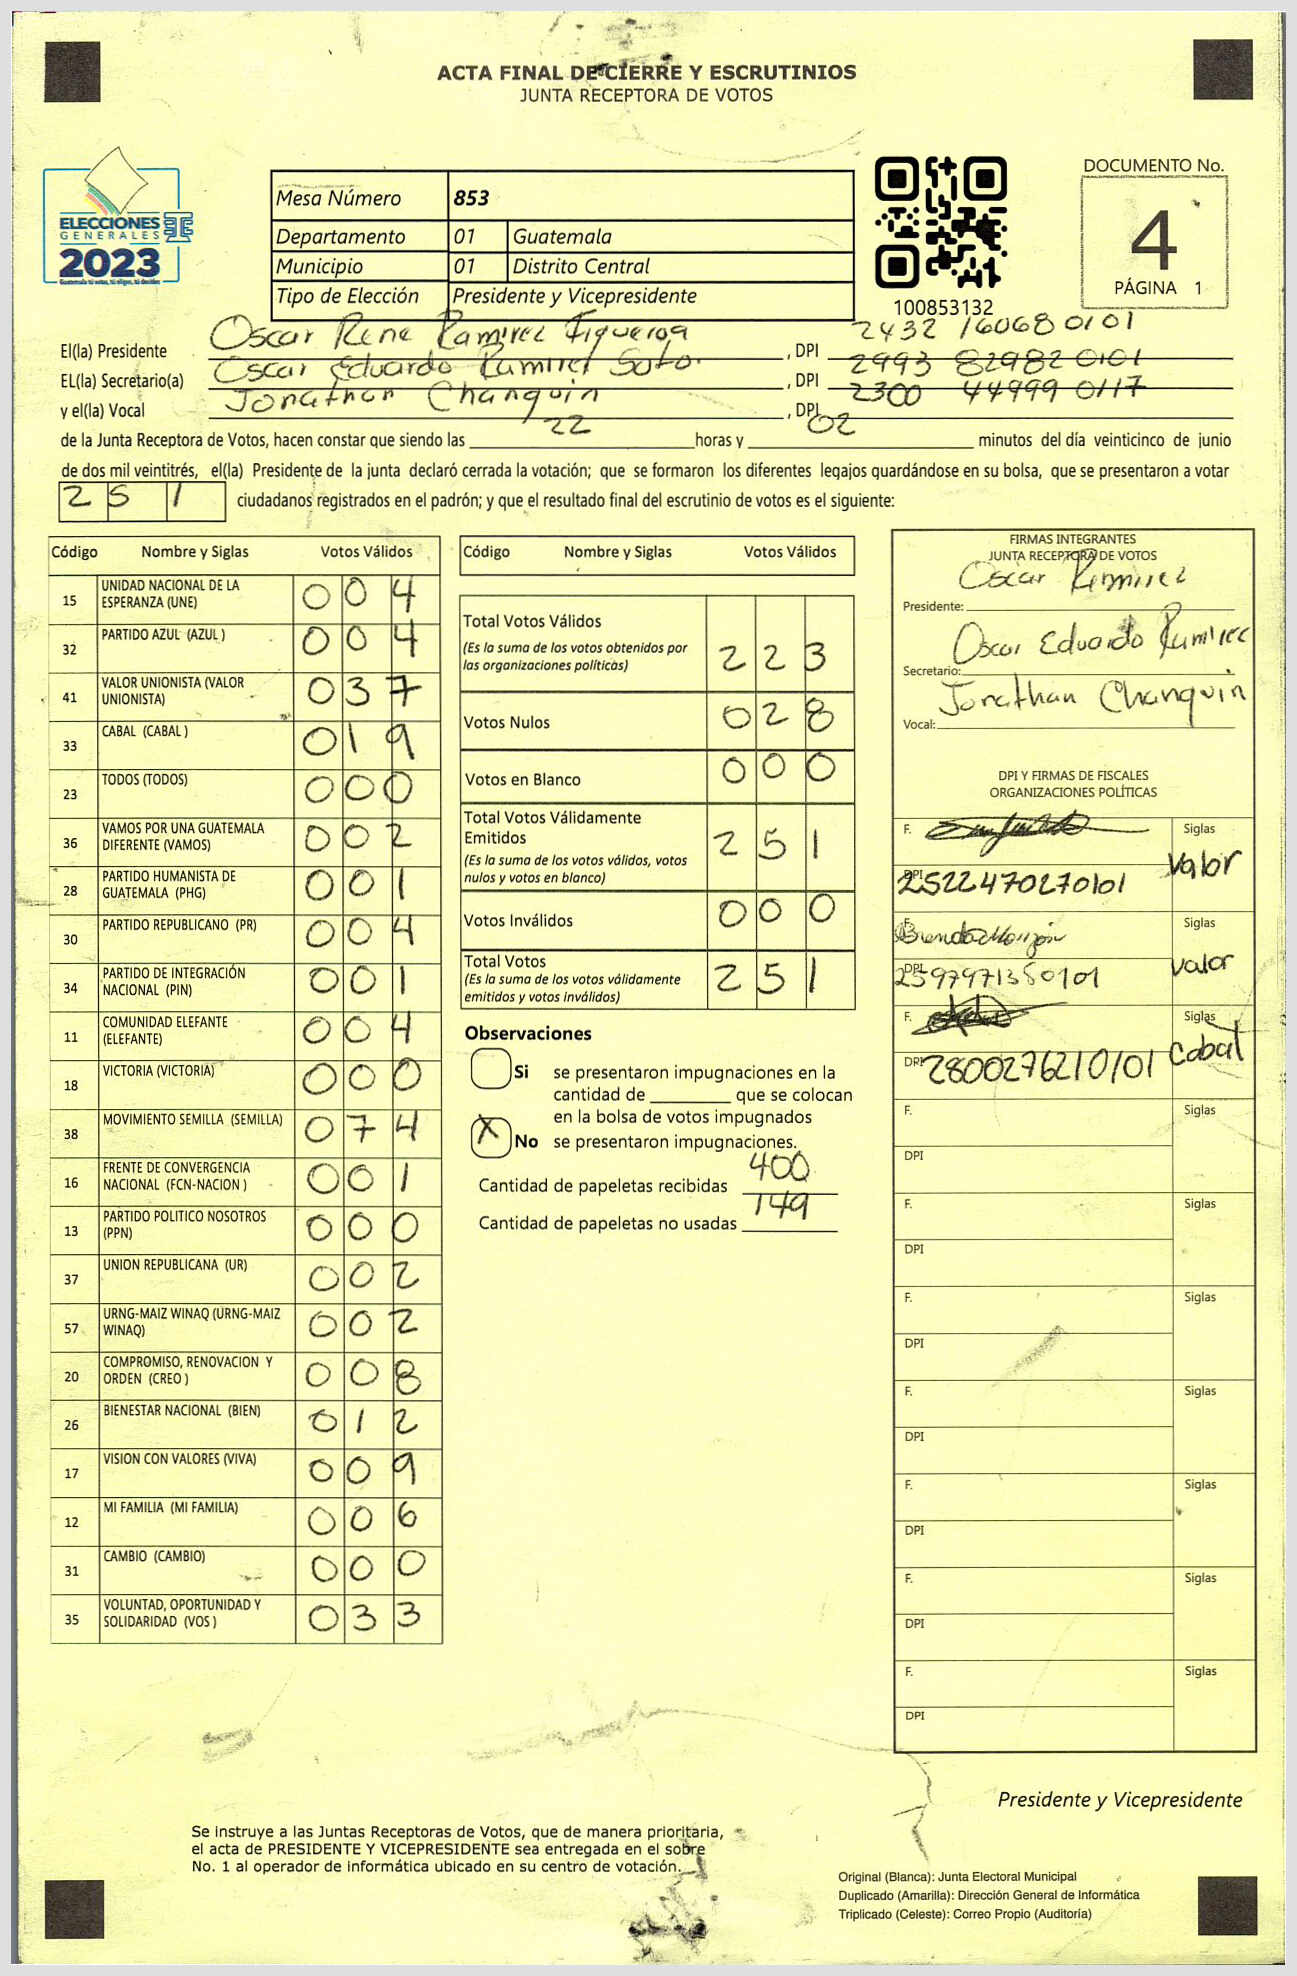 ACTA FINAL DE CIERRE Y ESCRUTINIOS
JUNTA RECEPTORA DE VOTOS
ELECCIONES
GENERALES
2023
Guatemala tú votas, tú eliges, tú decides
Mesa Número 853
Departamento 01 Guatemala
Municipio 01 Distrito Central
Tipo de Elección Presidente y Vicepresidente
100853132
DOCUMENTO No.
4
PÁGINA 1
El(la) Presidente Oscar Rene Ramirez Figueroa , DPI 2432 16068 0101
EL(la) Secretario(a) Oscar Eduardo Ramirez Soto. , DPI 2993 82982 0101
y el(la) Vocal Jonathan Changuin , DPI 2300 44999 0117
de la Junta Receptora de Votos, hacen constar que siendo las 22 horas y 02 minutos del día veinticinco de junio
de dos mil veintitrés, el(la) Presidente de la junta declaró cerrada la votación; que se formaron los diferentes legajos guardándose en su bolsa, que se presentaron a votar
251 ciudadanos registrados en el padrón; y que el resultado final del escrutinio de votos es el siguiente:
Código Nombre y Siglas Votos Válidos
15 UNIDAD NACIONAL DE LA ESPERANZA (UNE) 004
32 PARTIDO AZUL (AZUL ) 004
41 VALOR UNIONISTA (VALOR UNIONISTA) 037
33 CABAL (CABAL ) 019
23 TODOS (TODOS) 000
36 VAMOS POR UNA GUATEMALA DIFERENTE (VAMOS) 002
28 PARTIDO HUMANISTA DE GUATEMALA (PHG) 001
30 PARTIDO REPUBLICANO (PR) 004
34 PARTIDO DE INTEGRACIÓN NACIONAL (PIN) 001
11 COMUNIDAD ELEFANTE (ELEFANTE) 004
18 VICTORIA (VICTORIA) 000
38 MOVIMIENTO SEMILLA (SEMILLA) 074
16 FRENTE DE CONVERGENCIA NACIONAL (FCN-NACION ) 001
13 PARTIDO POLITICO NOSOTROS (PPN) 000
37 UNION REPUBLICANA (UR) 002
57 URNG-MAIZ WINAQ (URNG-MAIZ WINAQ) 002
20 COMPROMISO, RENOVACION Y ORDEN (CREO ) 008
26 BIENESTAR NACIONAL (BIEN) 012
17 VISION CON VALORES (VIVA) 009
12 MI FAMILIA (MI FAMILIA) 006
31 CAMBIO (CAMBIO) 000
35 VOLUNTAD, OPORTUNIDAD Y SOLIDARIDAD (VOS ) 033
Código Nombre y Siglas Votos Válidos
Total Votos Válidos 223
(Es la suma de los votos obtenidos por
las organizaciones políticas)
Votos Nulos 028
Votos en Blanco 000
Total Votos Válidamente
Emitidos 251
(Es la suma de los votos válidos, votos
nulos y votos en blanco)
Votos Inválidos 000
Total Votos 251
(Es la suma de los votos válidamente
emitidos y votos inválidos)
Observaciones
Si se presentaron impugnaciones en la
cantidad de ________ que se colocan
en la bolsa de votos impugnados
X No se presentaron impugnaciones.
Cantidad de papeletas recibidas 400
Cantidad de papeletas no usadas 149
FIRMAS INTEGRANTES
JUNTA RECEPTORA DE VOTOS
Presidente: Oscar Ramirez
Secretario: Oscar Eduardo Ramirez
Vocal: Jonathan Changuin
DPI Y FIRMAS DE FISCALES
ORGANIZACIONES POLÍTICAS
F. Siglas
DPI 2522470270101 Valor
F. Brenda Monzón Siglas
DPI 2597971350101 Valor
F. Siglas
DPI 2800276210101 Cabal
F. Siglas
DPI
F. Siglas
DPI
F. Siglas
DPI
F. Siglas
DPI
F. Siglas
DPI
F. Siglas
DPI
F. Siglas
DPI
Presidente y Vicepresidente
Se instruye a las Juntas Receptoras de Votos, que de manera prioritaria,
el acta de PRESIDENTE Y VICEPRESIDENTE sea entregada en el sobre
No. 1 al operador de informática ubicado en su centro de votación.
Original (Blanca): Junta Electoral Municipal
Duplicado (Amarilla): Dirección General de Informática
Triplicado (Celeste): Correo Propio (Auditoría)